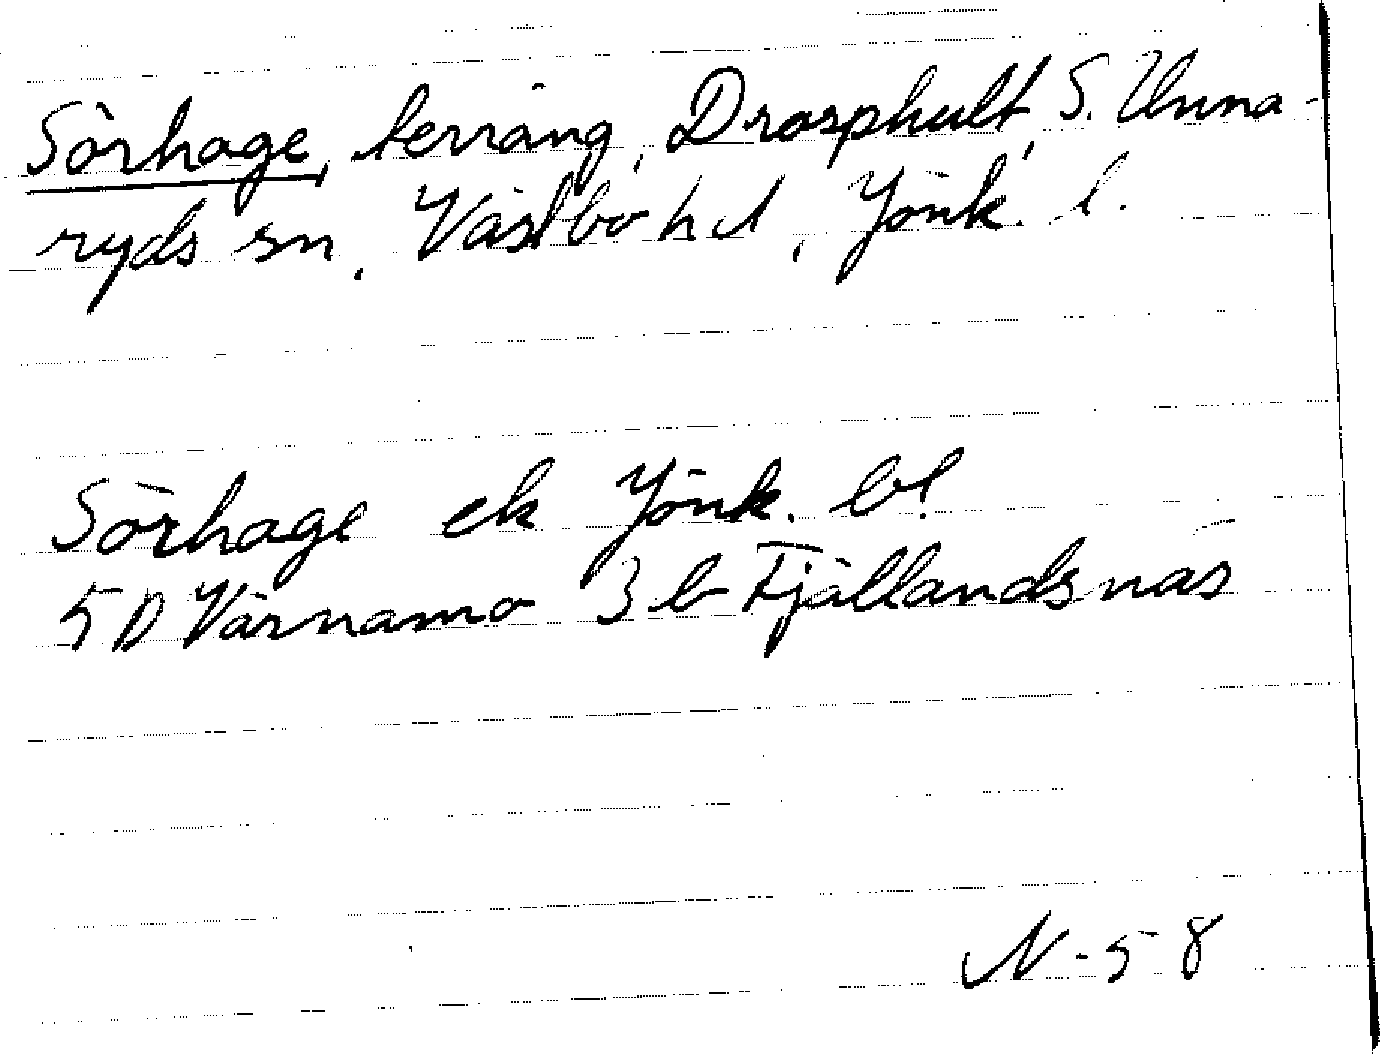 Sörhage, terräng, Drosphult, S. Unna-
ryds sn, Västbo hd, Jönk. l.
Sörhage ek Jönk. bl.
5D Värnamo 3b Fjällandsnäs
N-58